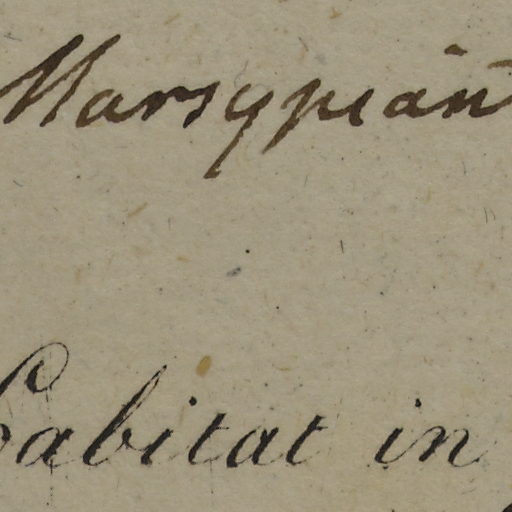 Marsypian
Habitat in